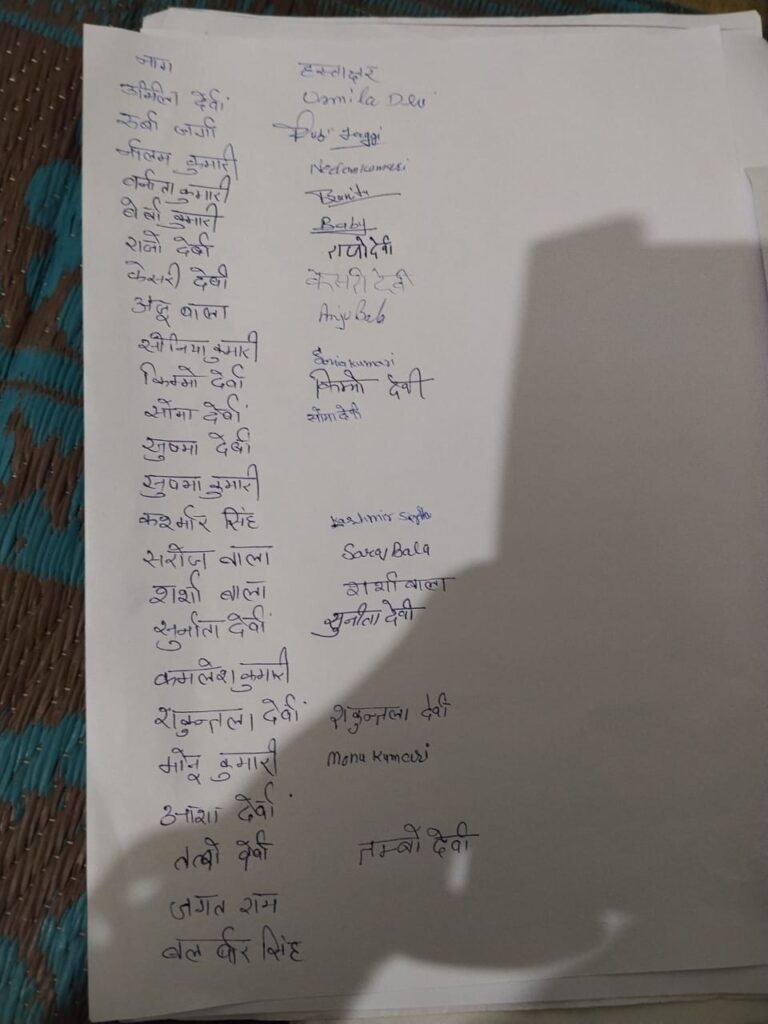 नाम हस्ताक्षर
उर्मिला देवी Urmila Devi
रुबी जग्गी Rubi Jaggi
नीलम कुमारी Neelam kumari
बनीता कुमारी Banita
बेबी कुमारी Baby
राजो देवी राजो देवी
केसरी देवी केसरी देवी
अंजू बाला Anju Bala
सोनिया कुमारी Sonia kumari
किम्मो देवी किम्मो देवी
सोमा देवी सोमा देवी
सुषमा देवी
सुषमा कुमारी
कश्मीर सिंह Kashmir Singh
सरोज बाला Saroj Bala
शशी बाला शशी बाला
सुनीता देवी सुनीता देवी
कमलेश कुमारी
शकुन्तला देवी शकुन्तला देवी
मोनू कुमारी Monu Kumari
आशा देवी
देवी तम्बो देवी
जगत राम
बलबीर सिंह